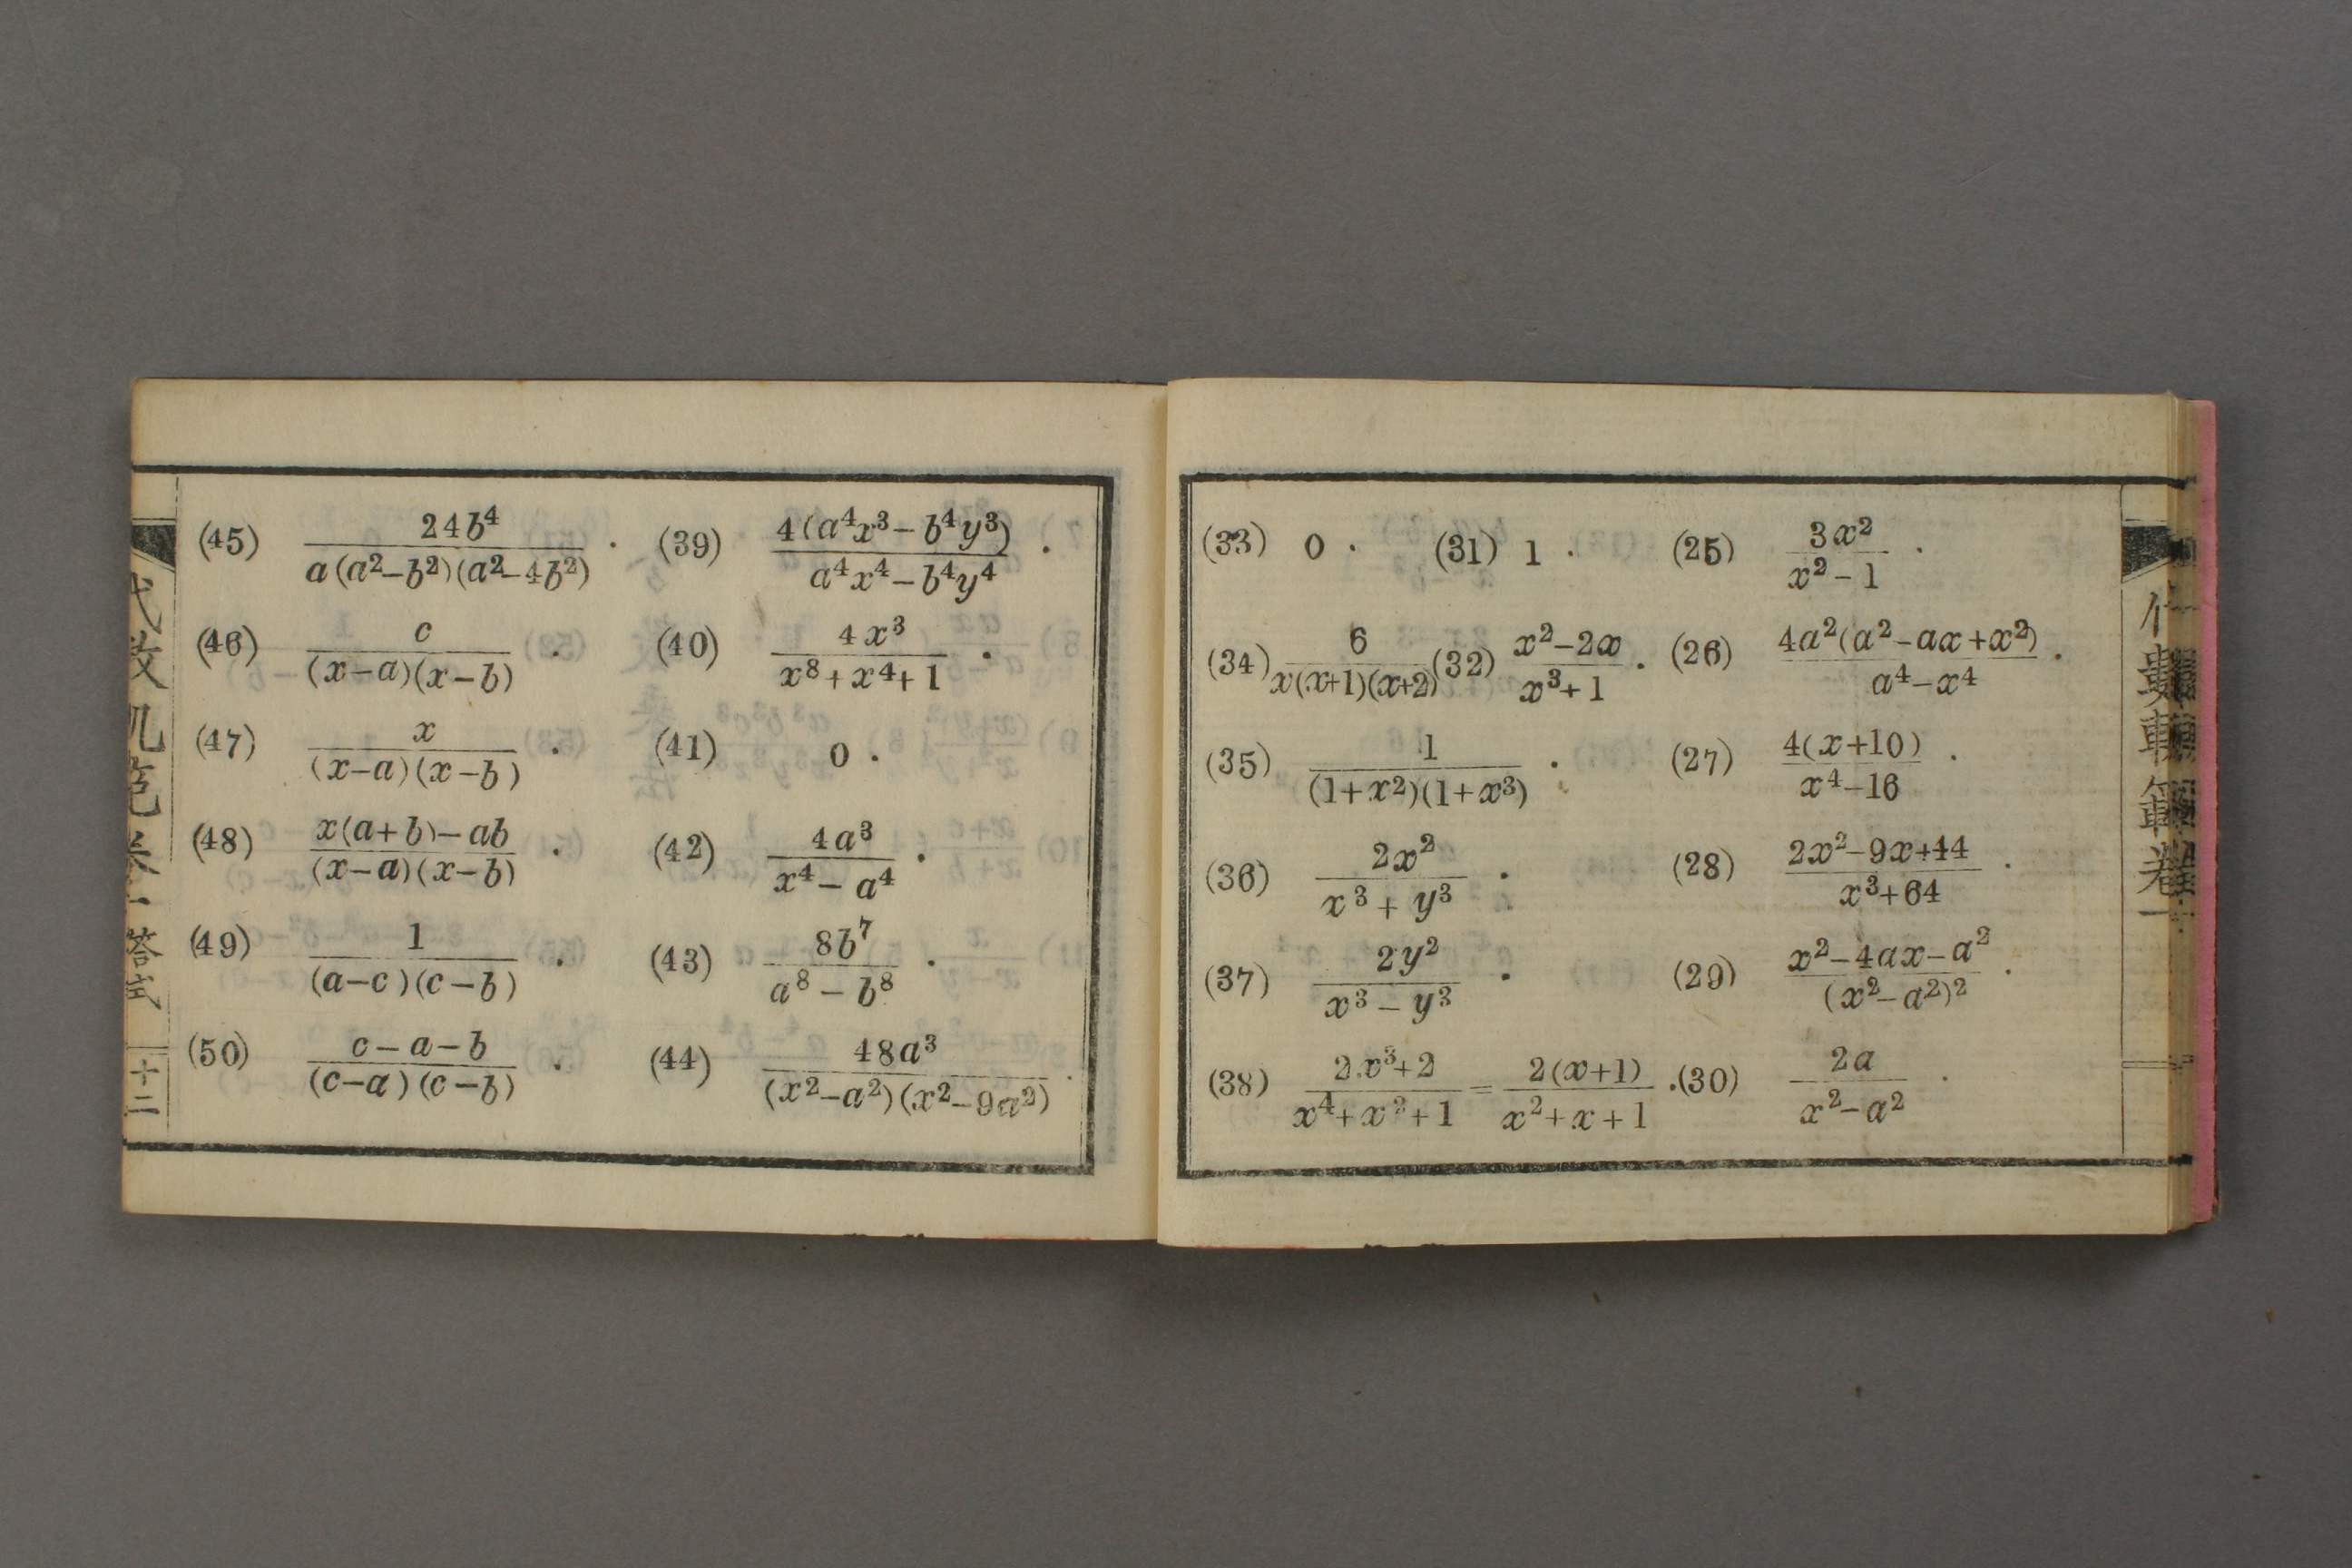 (25) \frac{3x^2}{x^2-1} .
(26) \frac{4a^2(a^2-ax+x^2)}{a^4-x^4} .
(27) \frac{4(x+10)}{x^4-16} .
(28) \frac{2x^2-9x+44}{x^3+64} .
(29) \frac{x^2-4ax-a^2}{(x^2-a^2)^2} .
(30) \frac{2a}{x^2-a^2} .
(31) 1 .
(32) \frac{x^2-2x}{x^3+1} .
(33) 0 .
(34) \frac{6}{x(x+1)(x+2)}
(35) \frac{1}{(1+x^2)(1+x^3)} .
(36) \frac{2x^2}{x^3+y^3} .
(37) \frac{2y^2}{x^3-y^3} .
(38) \frac{2x^3+2}{x^4+x^2+1} = \frac{2(x+1)}{x^2+x+1} .
(39) \frac{4(a^4x^3-b^4y^3)}{a^4x^4-b^4y^4} .
(40) \frac{4x^3}{x^8+x^4+1} .
(41) 0 .
(42) \frac{4a^3}{x^4-a^4} .
(43) \frac{8b^7}{a^8-b^8} .
(44) \frac{48a^3}{(x^2-a^2)(x^2-9a^2)} .
(45) \frac{24b^4}{a(a^2-b^2)(a^2-4b^2)} .
(46) \frac{c}{(x-a)(x-b)} .
(47) \frac{x}{(x-a)(x-b)} .
(48) \frac{x(a+b)-ab}{(x-a)(x-b)} .
(49) \frac{1}{(a-c)(c-b)} .
(50) \frac{c-a-b}{(c-a)(c-b)} .
十二